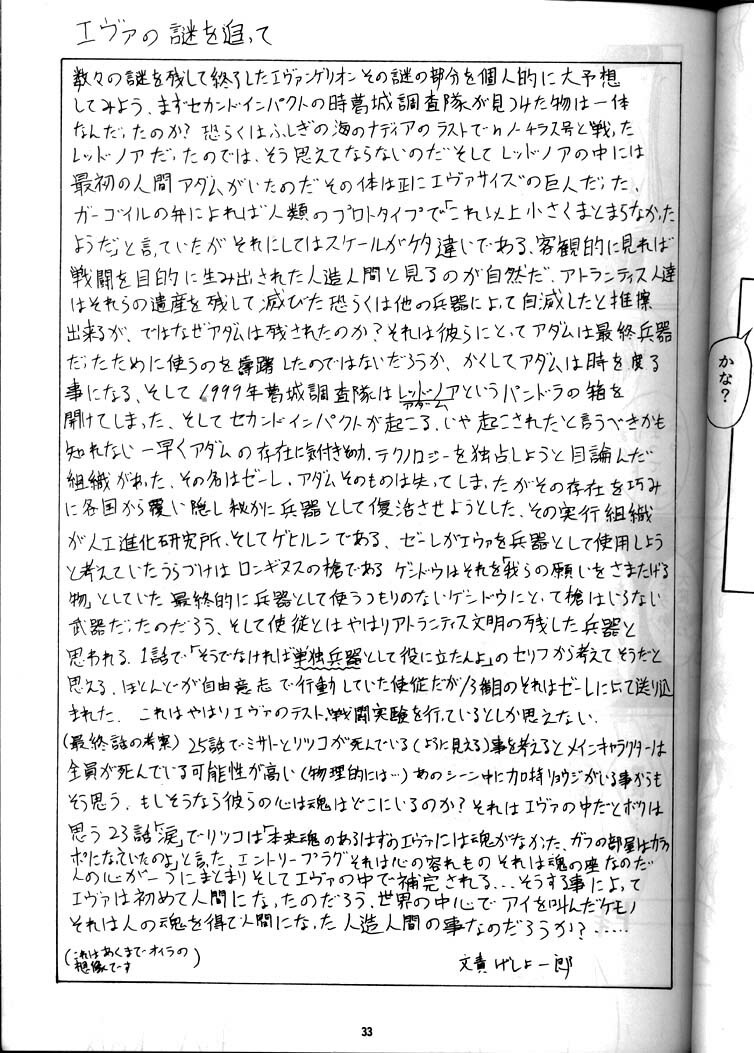 エヴァの謎を追って
数々の謎を残して終了したエヴァンゲリオンその謎の部分を個人的に大予想
してみよう、まずセカンドインパクトの時葛城調査隊が見つけた物は一体
なんだったのか?恐らくはふしぎの海のナディアのラストでnノーチラス号と戦った
レッドノアだったのでは、そう思えてならないのだそしてレッドノアの中には
最初の人間アダムがいたのだその体は正にエヴァサイズの巨人だった、
ガーゴイルの弁によれば人類のプロトタイプで「これ以上小さくまとまらなかった
ようだ」と言っていたがそれにしてはスケールがケタ違いである、客観的に見れば
戦闘を目的に生み出された人造人間と見るのが自然だ、アトランティス人達
はそれらの遺産を残して滅びた恐らくは他の兵器によって自滅したと推察
出来るが、ではなぜアダムは残されたのか?それは彼らにとってアダムは最終兵器
だったために使うのを躊躇したのではないだろうか、かくしてアダムは時を度る
事になる、そして1999年葛城調査隊はレッドノアというパンドラの箱を
アダム
開けてしまった、そしてセカンドインパクトが起こる、いや起こされたと言うべきかも
知れない 一早くアダムの存在に気付き、テクノロジーを独占しようと目論んだ
組織があった、その名はゼーレ、アダムそのものは失ってしまったがその存在を巧みに
に各国から覆い隠し秘かに兵器として復活させようとした、その実行組織
が人工進化研究所、そしてゲヒルンである、ゼーレがエヴァを兵器として使用しよう
と考えていたうらづけはロンギヌスの槍である ゲンドウはそれを「我らの願いをさまたげる
物」としていた 最終的に兵器として使うつもりのないゲンドウにとって槍はいらない
武器だったのだろう、そして使徒とはやはりアトランティス文明の残した兵器と
思われる、1話で「そうでなければ単独兵器として役に立たんよ」のセリフから考えてそうだと
思える、ほとんどが自由意志で行動していた使徒だが13番目のそれはゼーレによって送り込
まれた、これはやはりエヴァのテスト、戦闘実験を行っているとしか思えない、
(最終話の考察)25話でミサトとリツコが死んでいる(ように見える)事を考えるとメインキャラクターは
全員が死んでいる可能性が高い(物理的には…)あのシーン中に加持リョウジがいる事からも
そう思う、もしそうなら彼らの心は魂はどこにいるのか?それはエヴァの中だとボクは
思う23話「涙」でリツコは「本来魂のあるはずのエヴァには魂がなかった、ガフの部屋はカラッ
ポになっていたのよ」と言った、エントリープラグそれは心の容れもの それは魂の座なのだ
人の心が一つにまとまりそしてエヴァの中で補完される…そうする事によって
エヴァは初めて人間になったのだろう、世界の中心でアイを叫んだケモノ
それは人の魂を得て人間になった人造人間の事なのだろうか?……
(これはあくまでオイラの
想像です)
文責 げしょ一郎
33
かな?